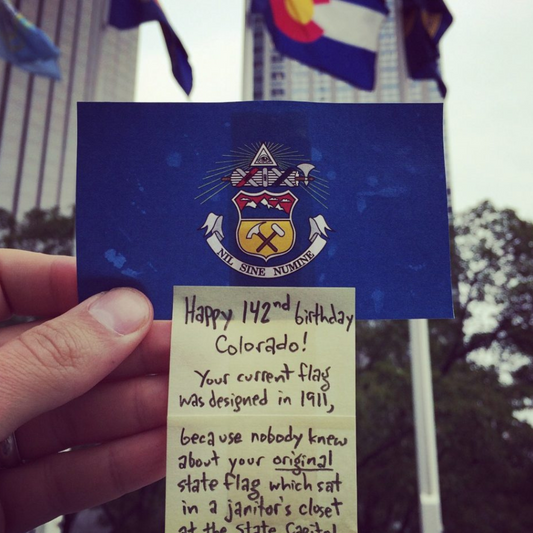 NIL SINE NUMINE
Happy 142nd birthday
Colorado!
Your current flag
was designed in 1911,
because nobody knew
about your original
state flag which sat
in a janitor's closet
at the State Capitol